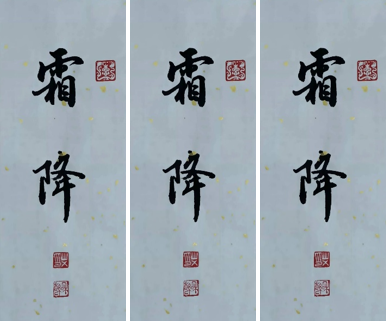 霜降
霜降
霜降